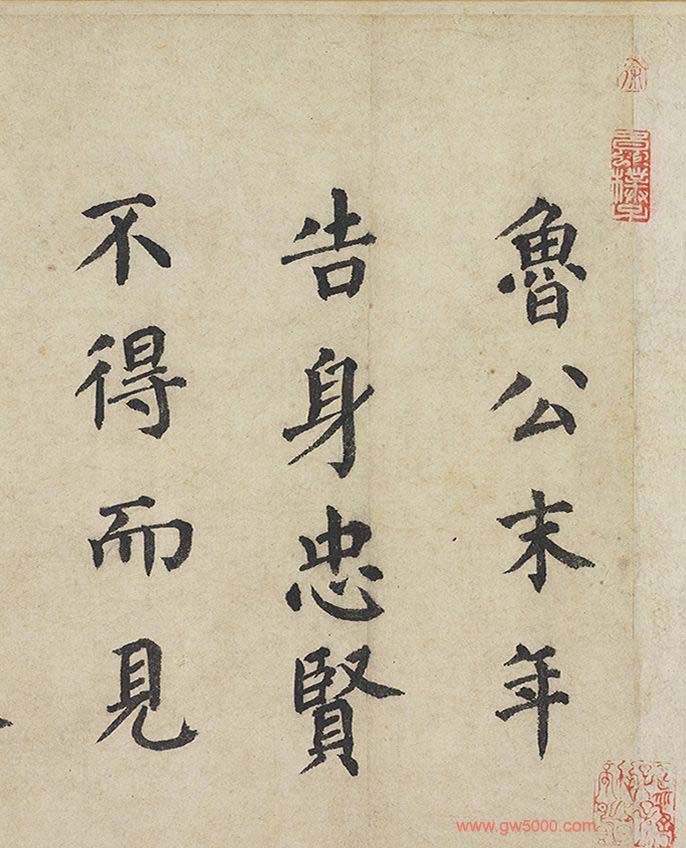 魯公末年
告身忠賢
不得而見
www.gw5000.com